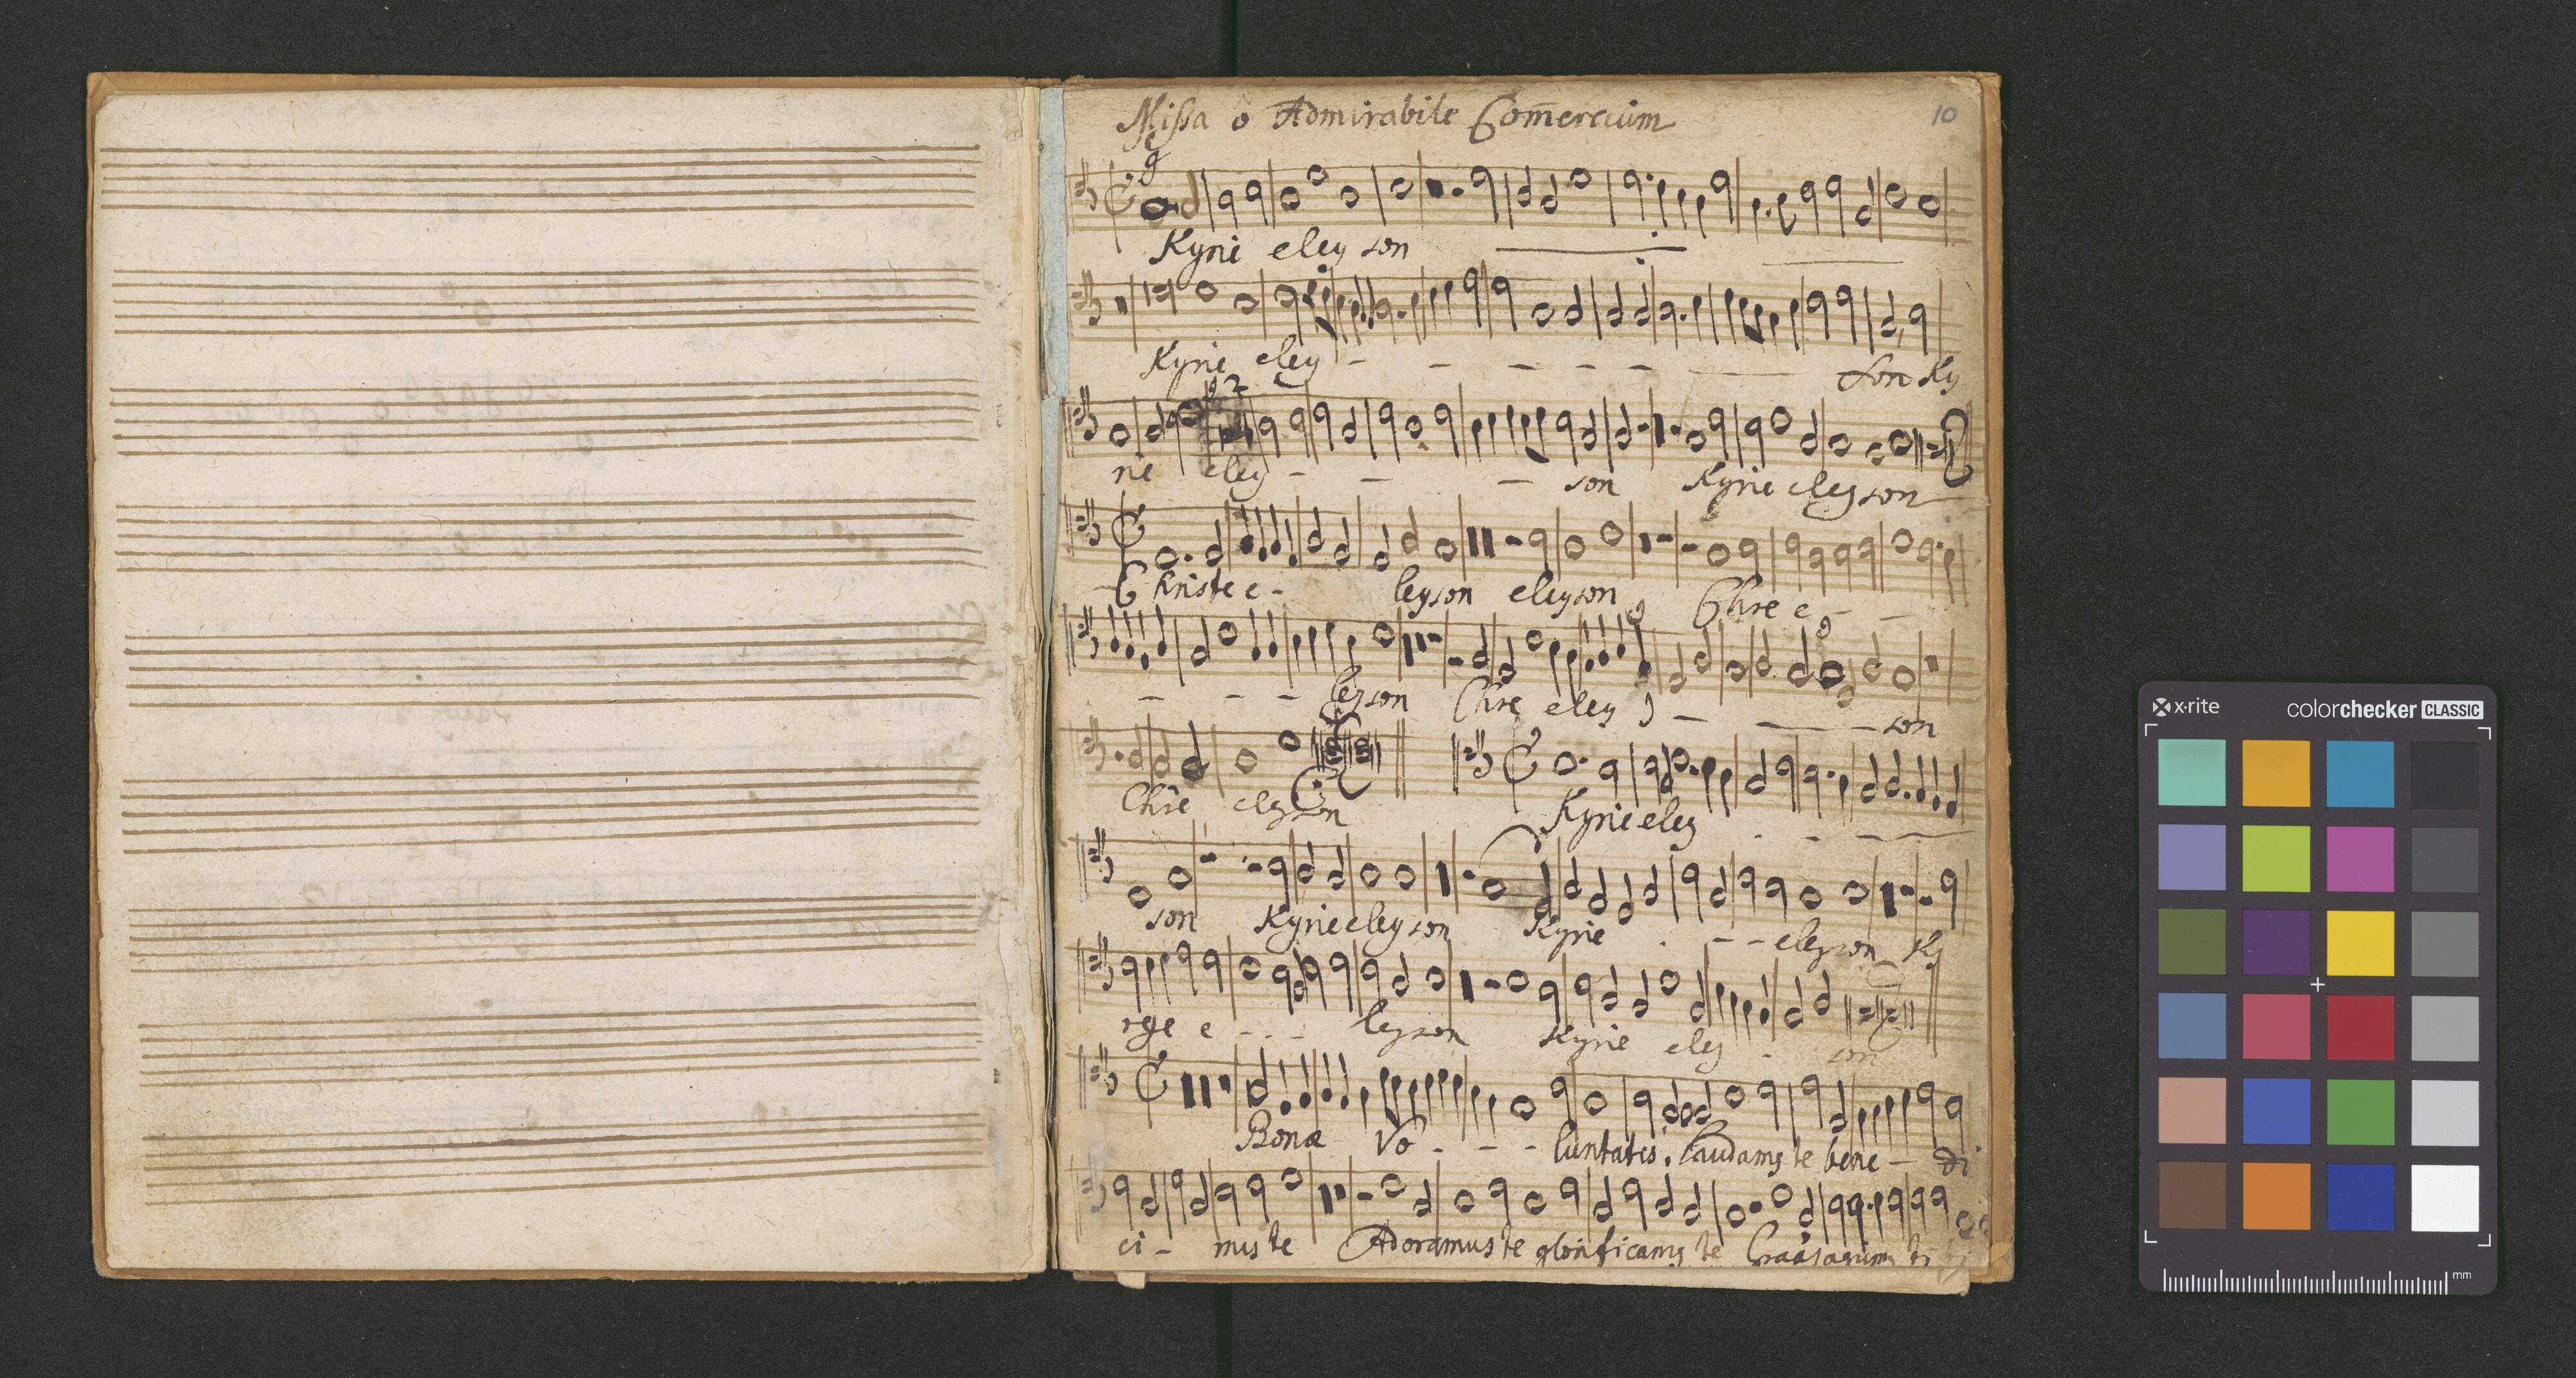 Missa o Admirabile Com̄ercium 10
Kyrie eley son
Kyrie eley - - - - - son Ky
rie eley - - - son Kyrie eleyson
Christe e - leyson eleyson Chre e - -
- - - leyson Chre eley - - - son
Chre eleyson Kyrie eley - - -
son Kyrie eleyson Kyrie - - eleyson Ky
rye e - - - leyson Kyrie eley - son
Bonæ Vo - - - luntatis. Laudams te bene - di
ci - mus te Adoramus te glorificams te
x·rite colorchecker CLASSIC
mm